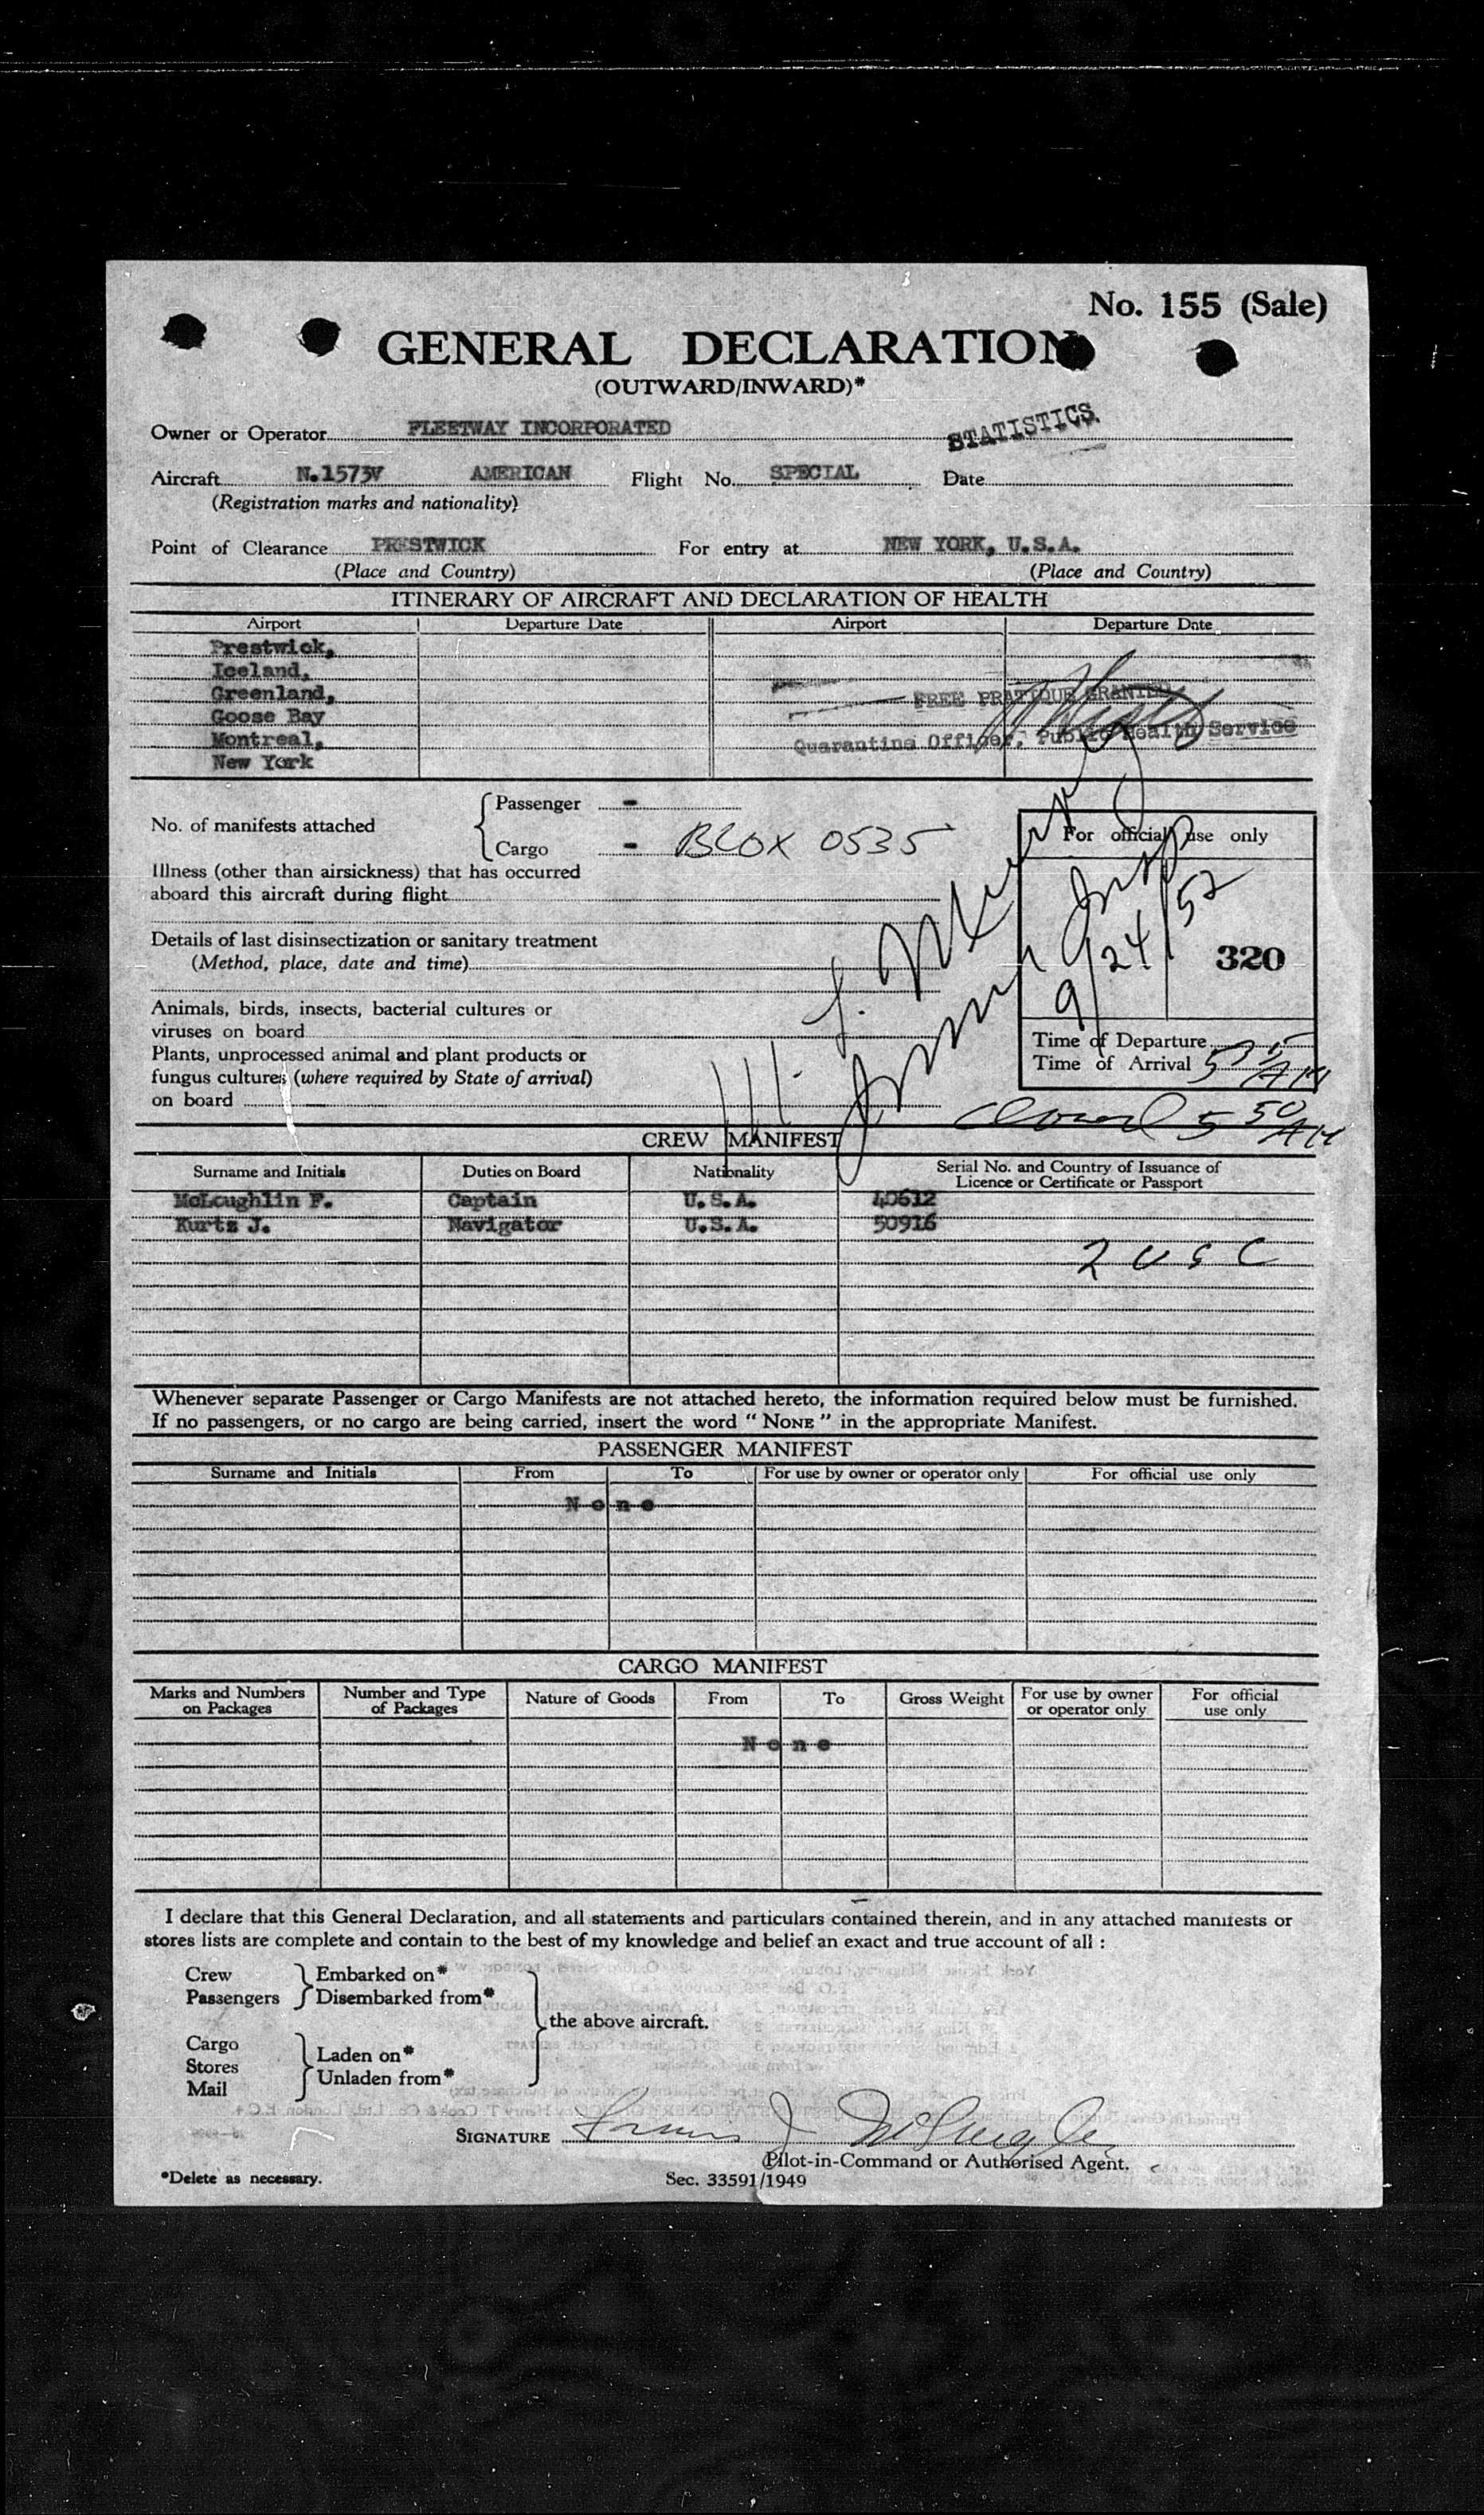 No. 155 (Sale)
GENERAL DECLARATION
(OUTWARD/INWARD)*
Owner or Operator FLEETWAY INCORPORATED STATISTICS
Aircraft N.1573V AMERICAN Flight No. SPECIAL Date
(Registration marks and nationality)
Point of Clearance PRESTWICK For entry at NEW YORK, U.S.A.
(Place and Country) (Place and Country)
ITINERARY OF AIRCRAFT AND DECLARATION OF HEALTH
Airport Departure Date Airport Departure Date
Prestwick,
Iceland,
Greenland, FREE PRATIQUE GRANTED
Goose Bay
Montreal, Quarantine Officer, Public Health Service
New York
No. of manifests attached { Passenger -
Cargo - BLOX 0535
For official use only
Illness (other than airsickness) that has occurred
aboard this aircraft during flight
Details of last disinsectization or sanitary treatment
(Method, place, date and time)
Insp
9/24/52
320
Animals, birds, insects, bacterial cultures or
viruses on board
Plants, unprocessed animal and plant products or
fungus cultures (where required by State of arrival)
on board
Time of Departure
Time of Arrival 5 35 AM
5 50 AM
CREW MANIFEST
Surname and Initials Duties on Board Nationality Serial No. and Country of Issuance of
Licence or Certificate or Passport
McLoughlin F. Captain U.S.A. 40612
Kurtz J. Navigator U.S.A. 50916
2 USC
Whenever separate Passenger or Cargo Manifests are not attached hereto, the information required below must be furnished.
If no passengers, or no cargo are being carried, insert the word "NONE" in the appropriate Manifest.
PASSENGER MANIFEST
Surname and Initials From To For use by owner or operator only For official use only
None
CARGO MANIFEST
Marks and Numbers on Packages Number and Type of Packages Nature of Goods From To Gross Weight For use by owner or operator only For official use only
None
I declare that this General Declaration, and all statements and particulars contained therein, and in any attached manifests or
stores lists are complete and contain to the best of my knowledge and belief an exact and true account of all :
Crew } Embarked on*
Passengers } Disembarked from*
the above aircraft.
Cargo
Stores } Laden on*
Mail } Unladen from*
SIGNATURE Francis J McLoughlin
Pilot-in-Command or Authorised Agent.
*Delete as necessary. Sec. 33591/1949